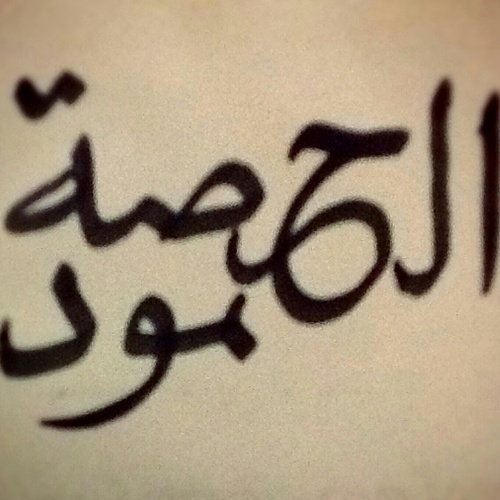 الحصة
مود